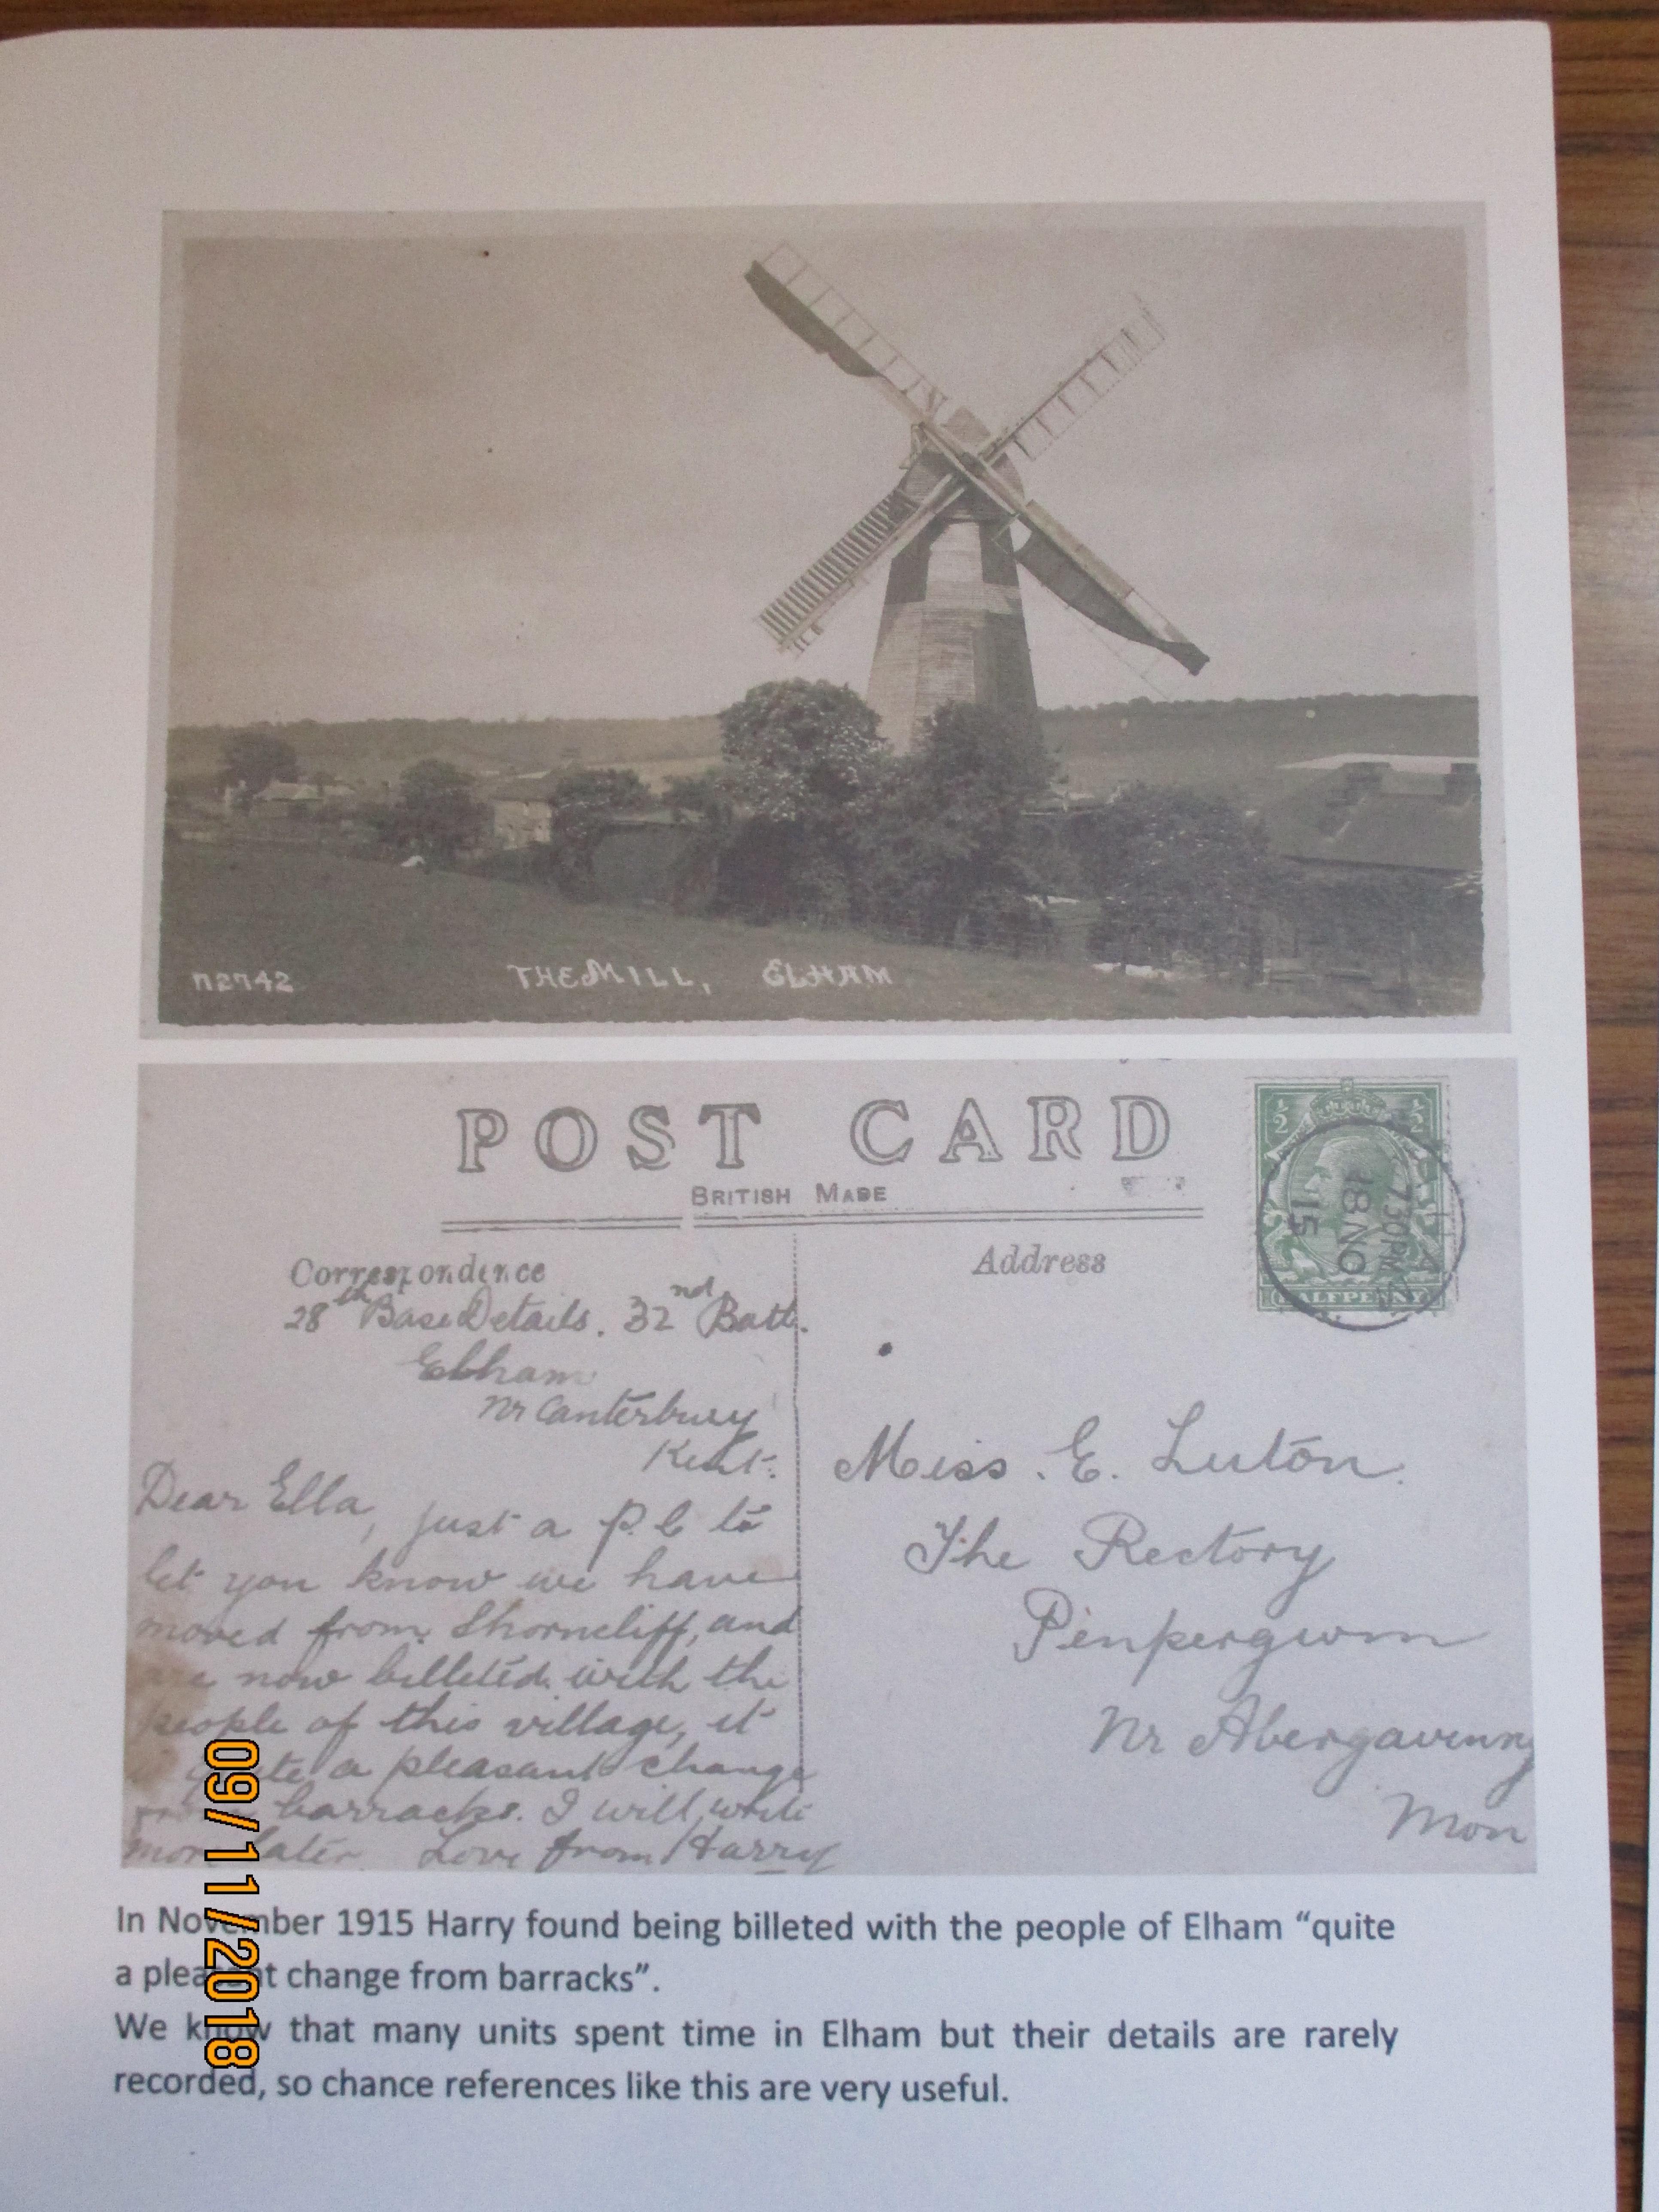 n2742 THE MILL, ELHAM
POST CARD
BRITISH MADE
½ ½
7.30PM
18 NO
15
HALFPENNY
Correspondence
Address
28th Base Details. 32nd Batt.
Elham
Nr Canterbury
Kent.
Dear Ella, just a P.C to
let you know we have
moved from Shorncliff, and
are now billeted with the
people of this village, it
quite a pleasant change
barracks. I will write
more later Love from Harry
Miss. E. Luton.
The Rectory
Penpergwm
Nr Abergavenny
Mon
In November 1915 Harry found being billeted with the people of Elham “quite
a pleasant change from barracks”.
We know that many units spent time in Elham but their details are rarely
recorded, so chance references like this are very useful.
09/11/2018